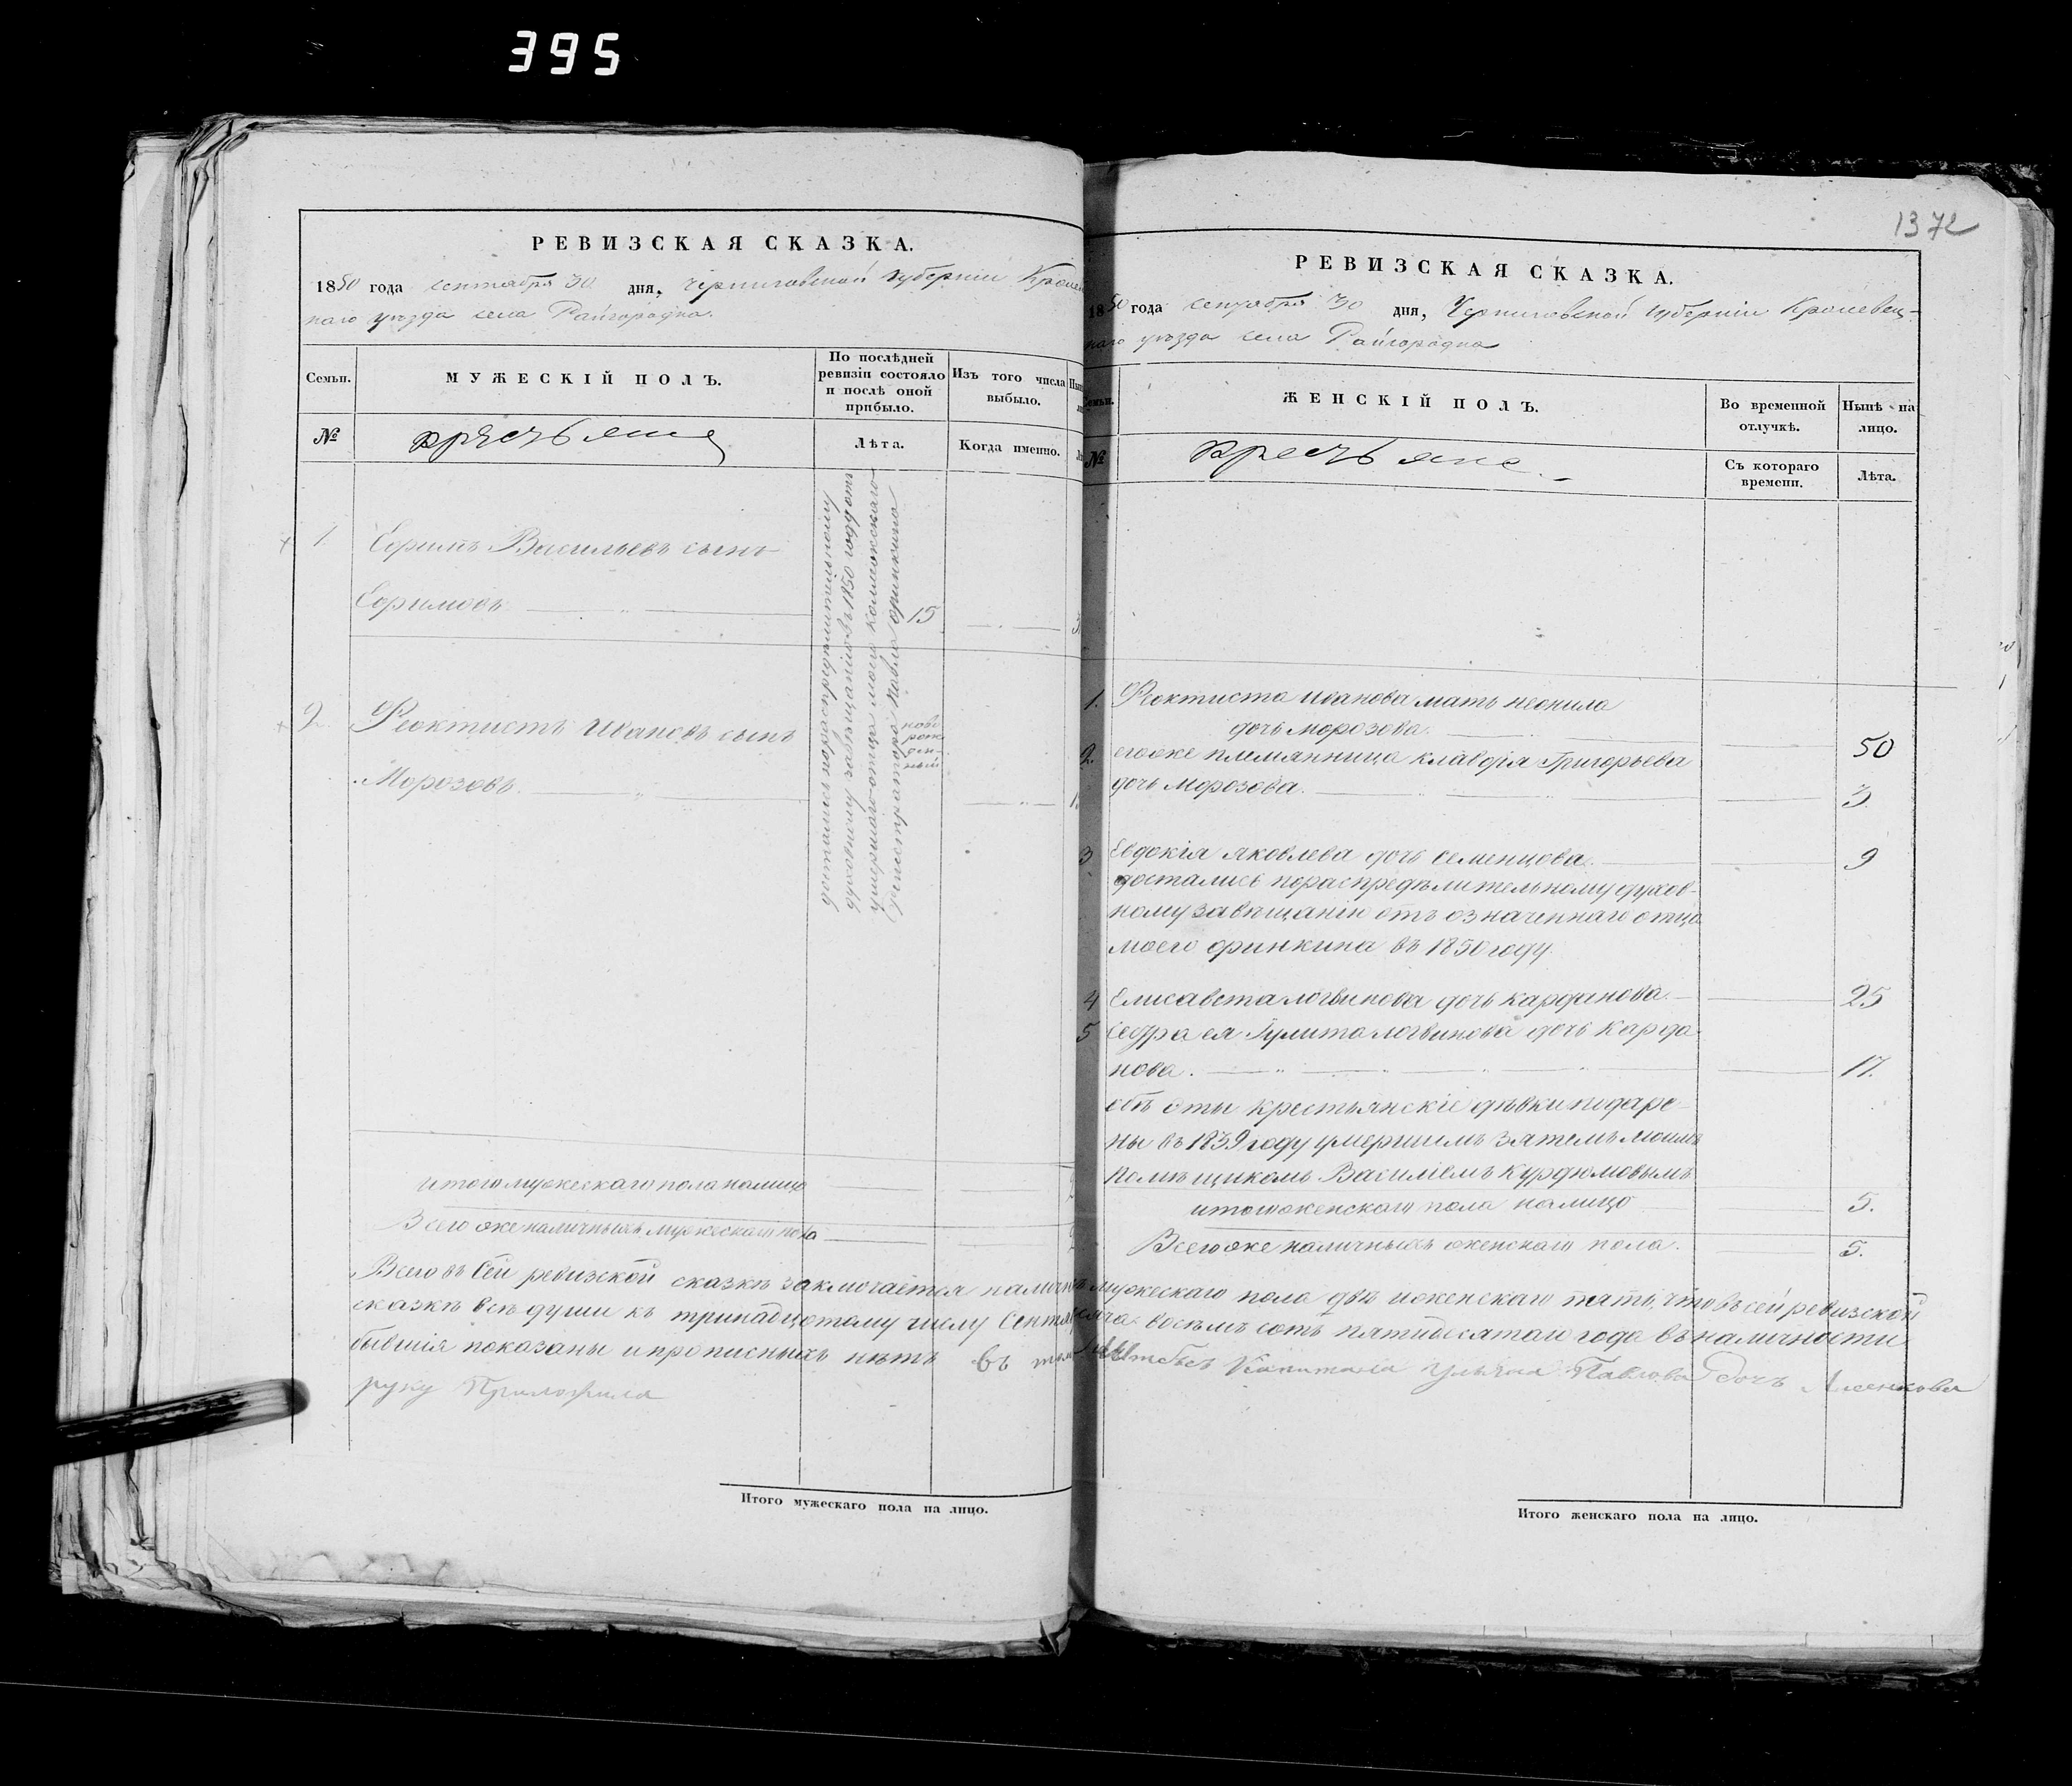 395
РЕВИЗСКАЯ СКАЗКА.
1850 года сентября 30 дня, черниговской губерніи Кролевец
наго уѣзда села Райгородка.
Семьи.
МУЖЕСКІЙ ПОЛЪ.
По послѣдней
ревизіи состояло
и послѣ оной
прибыло.
Изъ того числа
выбыло.
№
крестьяне
Лѣта.
Когда именно.
1.
Ефимъ Васильевъ сынъ
Ефимовъ 15
2.
Феоктистъ Ивановъ сынъ
Морозовъ.
ново
рож
ден
ный
достались пораспредѣлительному
духовному завѣщанію въ 1850 году отъ
умершаго отца моего колежскаго
регистратора Павла финкина
итого мужескаго пола налицо
Всего же наличныхъ мужескаго пола
1372
РЕВИЗСКАЯ СКАЗКА.
1850 года сентября 30 дня, Черниговской губерніи Кролевец-
наго уѣзда села Райгородка
Семьи.
ЖЕНСКІЙ ПОЛЪ.
Во временной
отлучкѣ.
Нынѣ на
лицо.
№
крестьяне.
Съ котораго
времени.
Лѣта.
1. Феоктиста Иванова мать неонила
дочь морозова. 50
2. егоже племянница клавдія Григорьева
дочь морозова. 3
3 Евдокія яковлева дочь семенцова. 9
достались пораспредѣлительному духов-
ному завѣщанію отъ означеннаго отца
моего финкина въ 1850 году
4 Елисавета логвинова дочь карданова. 25
5 сестра ея Гулита логвинова дочь карда-
нова. 17.
обѣ эты крестьянскіе дѣвки подаре-
ны въ 1839 году умершимъ зятемъ моимъ
помѣщикомъ Василіемъ Курдюмовымъ
итого женскаго пола налицо 5.
Всего же наличныхъ женскаго пола. 5.
Всего въ сей ревизской сказкѣ заключается наличныхъ мужескаго пола двѣ и женскаго пять, что въ сей ревизской
сказкѣ всѣ души къ тринадцатому числу Сентября тысяча восемь сотъ пятидесятаго года въ наличности
бывшія показаны и прописныхъ нѣтъ въ томъ Штабсъ Капитана Ульяна Павлова дочь
руку Приложила
Итого мужескаго пола на лицо.
Итого женскаго пола на лицо.